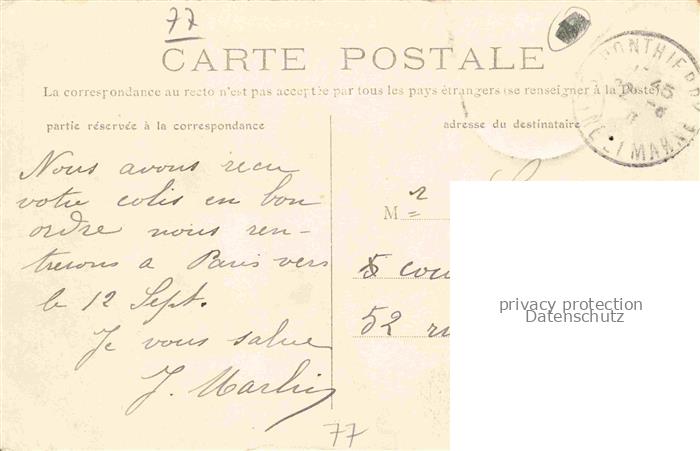 77
CARTE POSTALE
La correspondance au recto n'est pas acceptée par tous les pays étrangers (se renseigner à la Poste)
partie réservée à la correspondance
adresse du destinataire
PONTHIERRY
45
SNE-ET-MARNE
Nous avons recu
votre colis en bon
ordre nous ren-
trerons a Paris vers
le 12 Sept.
Je vous salue
J.
M r
5 cou
52 ru
privacy protection
Datenschutz
77